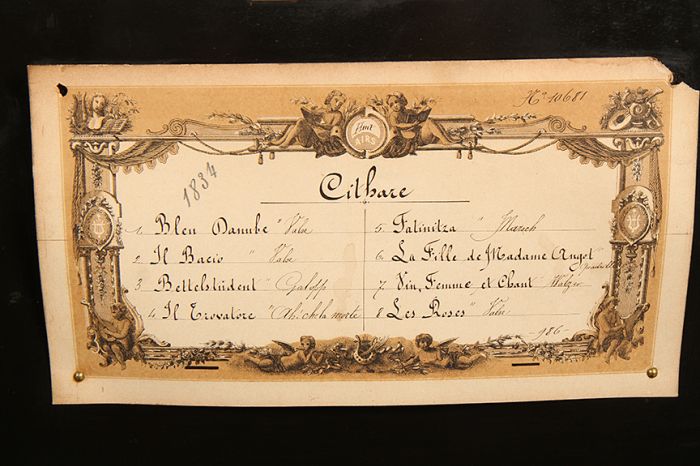 No 10681
Huit
AIRS
1834
Cithare
1. Bleu Danube " Valse
2 Il Bacio " Valse
3 Bettelstüdent " Galopp
4. Il Trovatore " Ah! che la morte
5. Fatinitza " Marsch
6. La Fille de Madame Angot
7 Vin, Femme et Chant Walzer
8 Les Roses " Valse
- 986 -